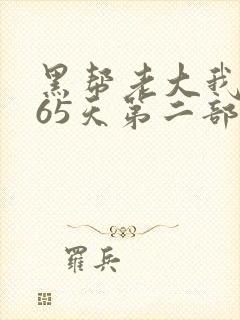 黑帮老大我
65天第二部
罗兵